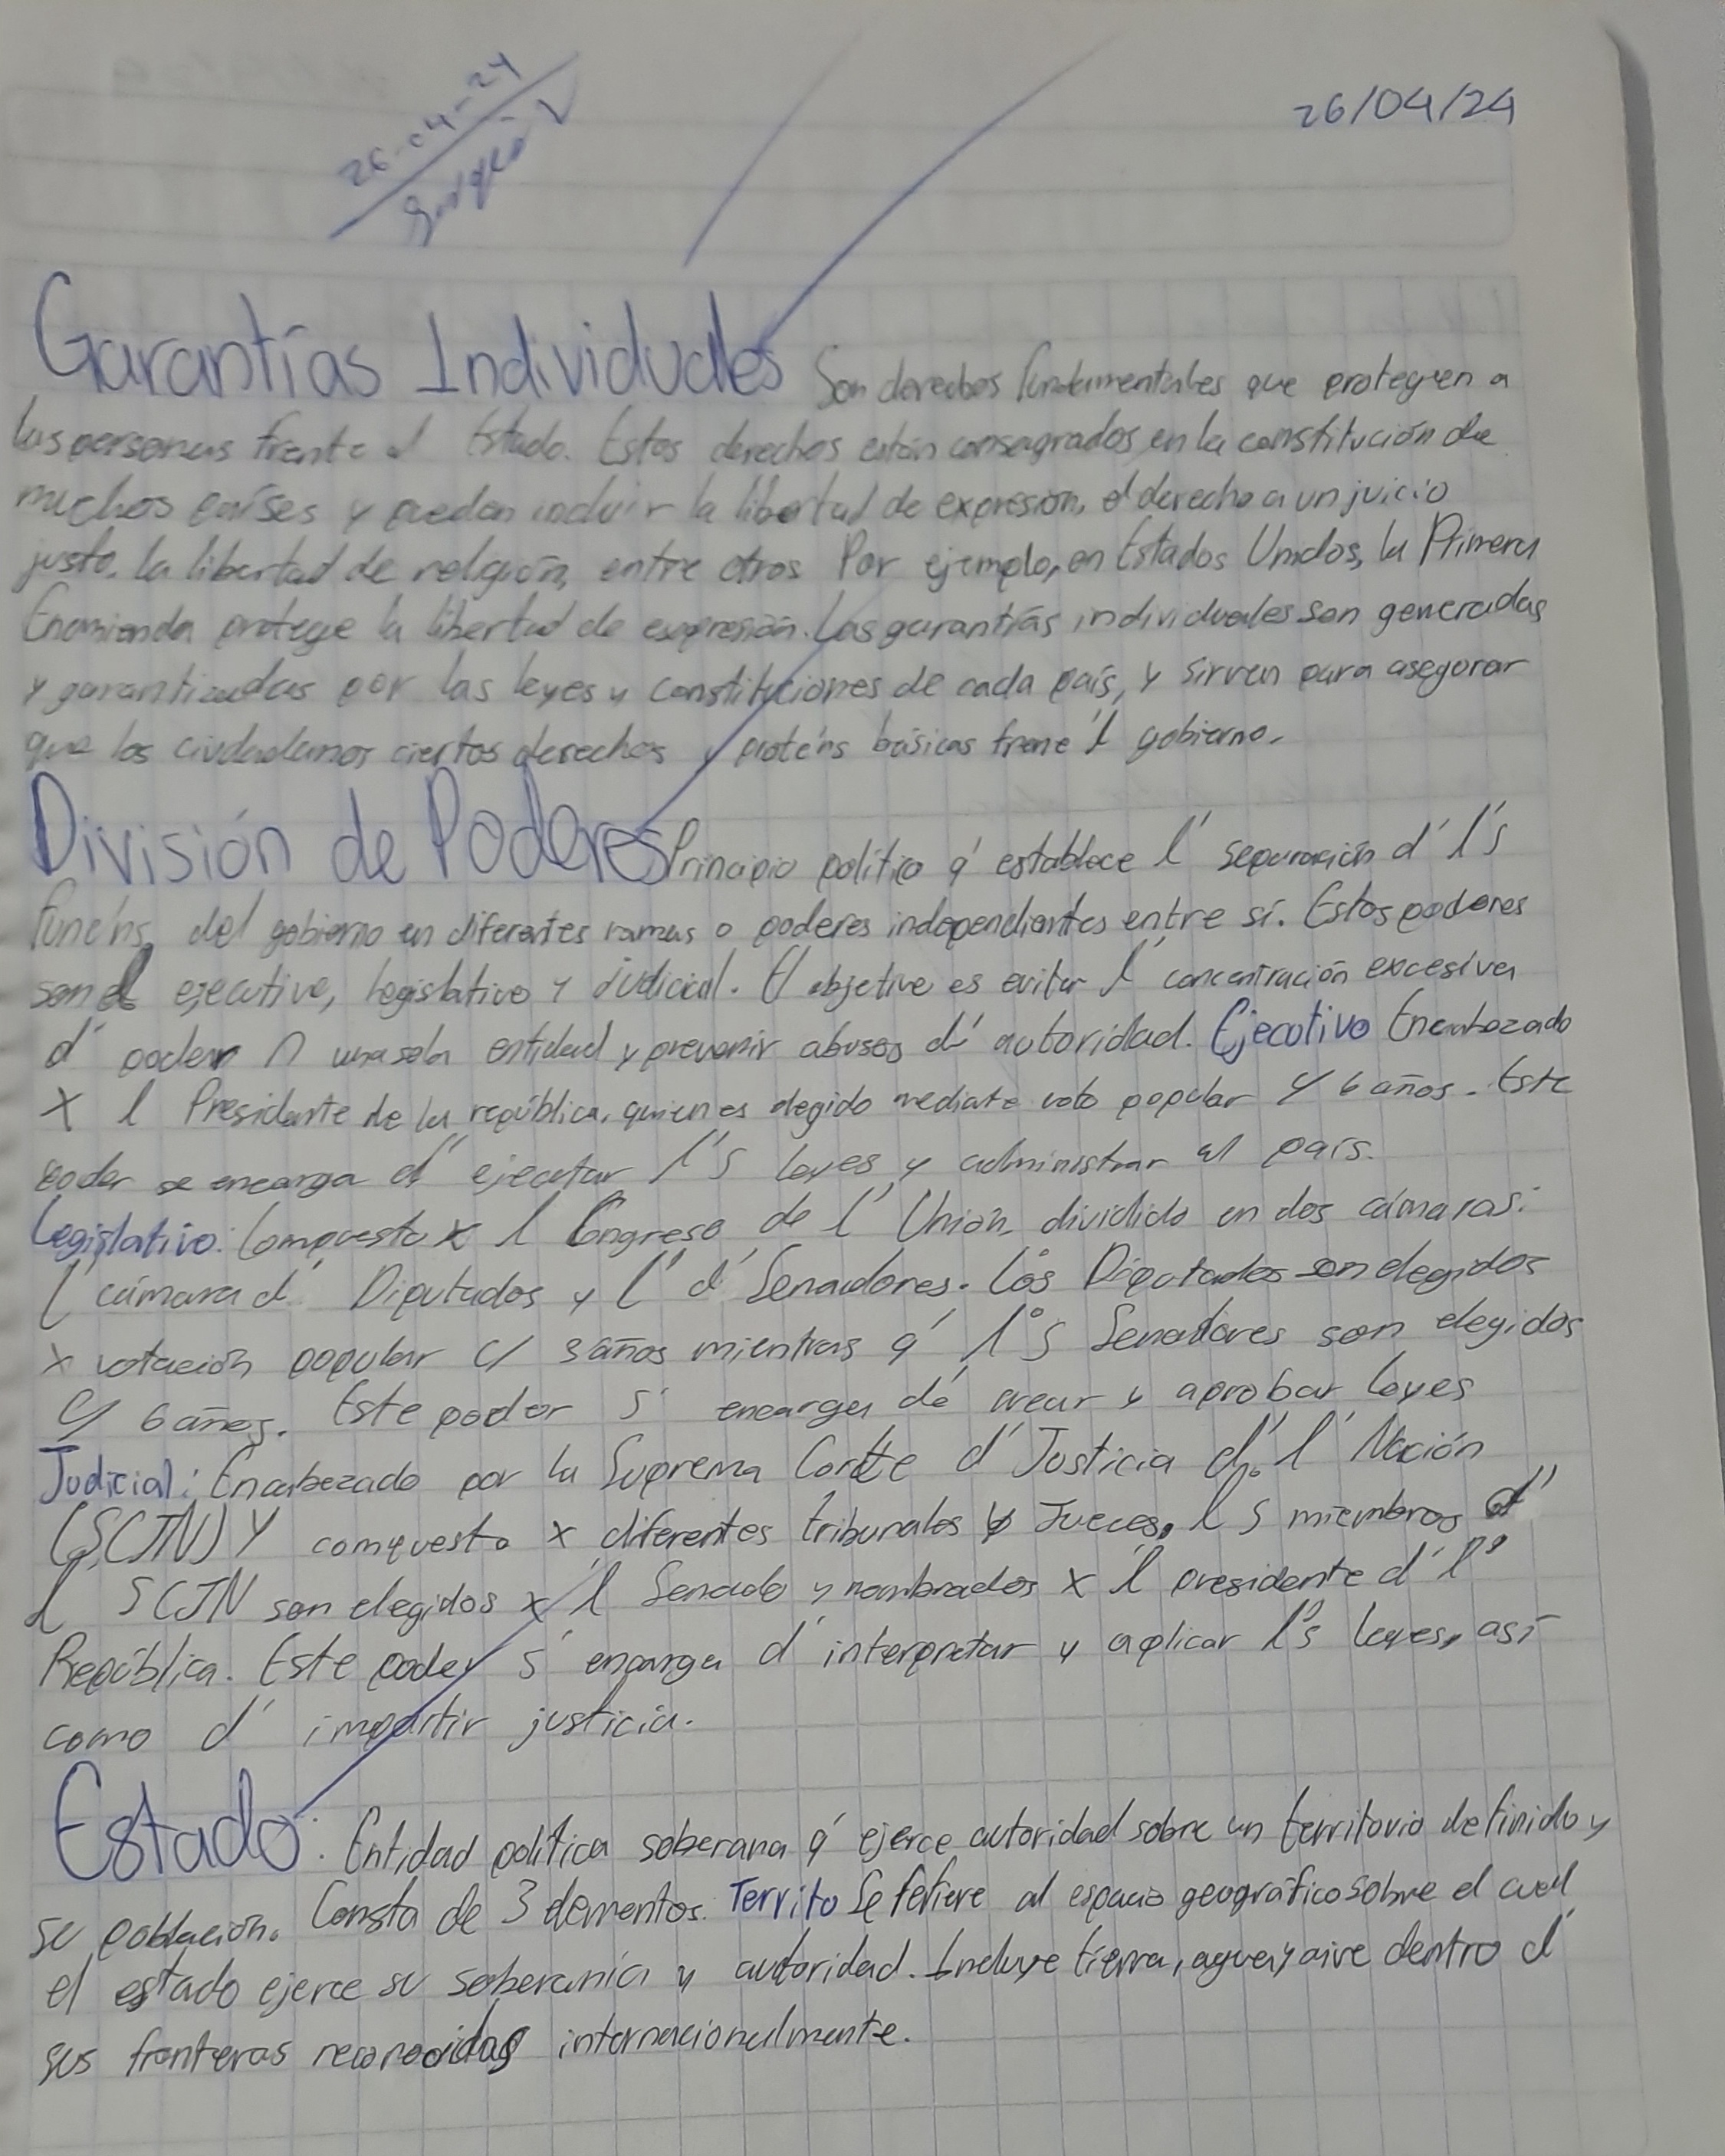 26-04-24
26/04/24
Garantías Individuales Son derechos fundamentales que protegen a
las personas frente al Estado. Estos derechos están consagrados en la constitución de
muchos países y pueden incluir la libertad de expresión, el derecho a un juicio
justo, la libertad de religión, entre otros Por ejemplo, en Estados Unidos, la Primera
Enmienda protege la libertad de expresión. Las garantías individuales son generadas
y garantizadas por las leyes y constituciones de cada país, y sirven para asegurar
que los ciudadanos ciertos derechos y proténs básicas frene l' gobierno.
División de Poderes Principio político q' establece l' separación d' l's
funcns del gobierno en diferentes ramas o poderes independientes entre sí. Estos poderes
son el ejecutivo, legislativo y judicial. El objetivo es evitar l' concentración excesiva
d' poder n una sola entidad y prevenir abusos d' autoridad. Ejecutivo Encabezado
x l Presidente de la república, quien es elegido mediate voto popular c/ 6 años. Este
poder se encarga d' ejecutar l's leyes y administrar al país.
Legislativo: Compuesto x l Congreso de l' Unión, dividido en dos cámaras:
l' cámara d' Diputados y l' d' Senadores. Los Diputados son elegidos
x votación popular c/ 3 años mientras q' l°s Senadores son elegidos
c/ 6 años. Este poder s' encarga de crear y aprobar leyes
Judicial: Encabezado por la Suprema Corte d' Justicia d' l' Nación
(SCJN) y compuesto x diferentes tribunales y Jueces, l°s miembros d'
l' SCJN son elegidos x l Senado y nombrados x l presidente d' l'
República. Este poder s' encarga d' interpretar y aplicar l's leyes, así
como d' impartir justicia.
Estado: Entidad política soberana q' ejerce autoridad sobre un territorio definido y
su población. Consta de 3 elementos. Territo Se refiere al espacio geográfico sobre el cual
el estado ejerce su soberanía y autoridad. Incluye tierra, agua y aire dentro d'
sus fronteras reconocidas internacionalmente.